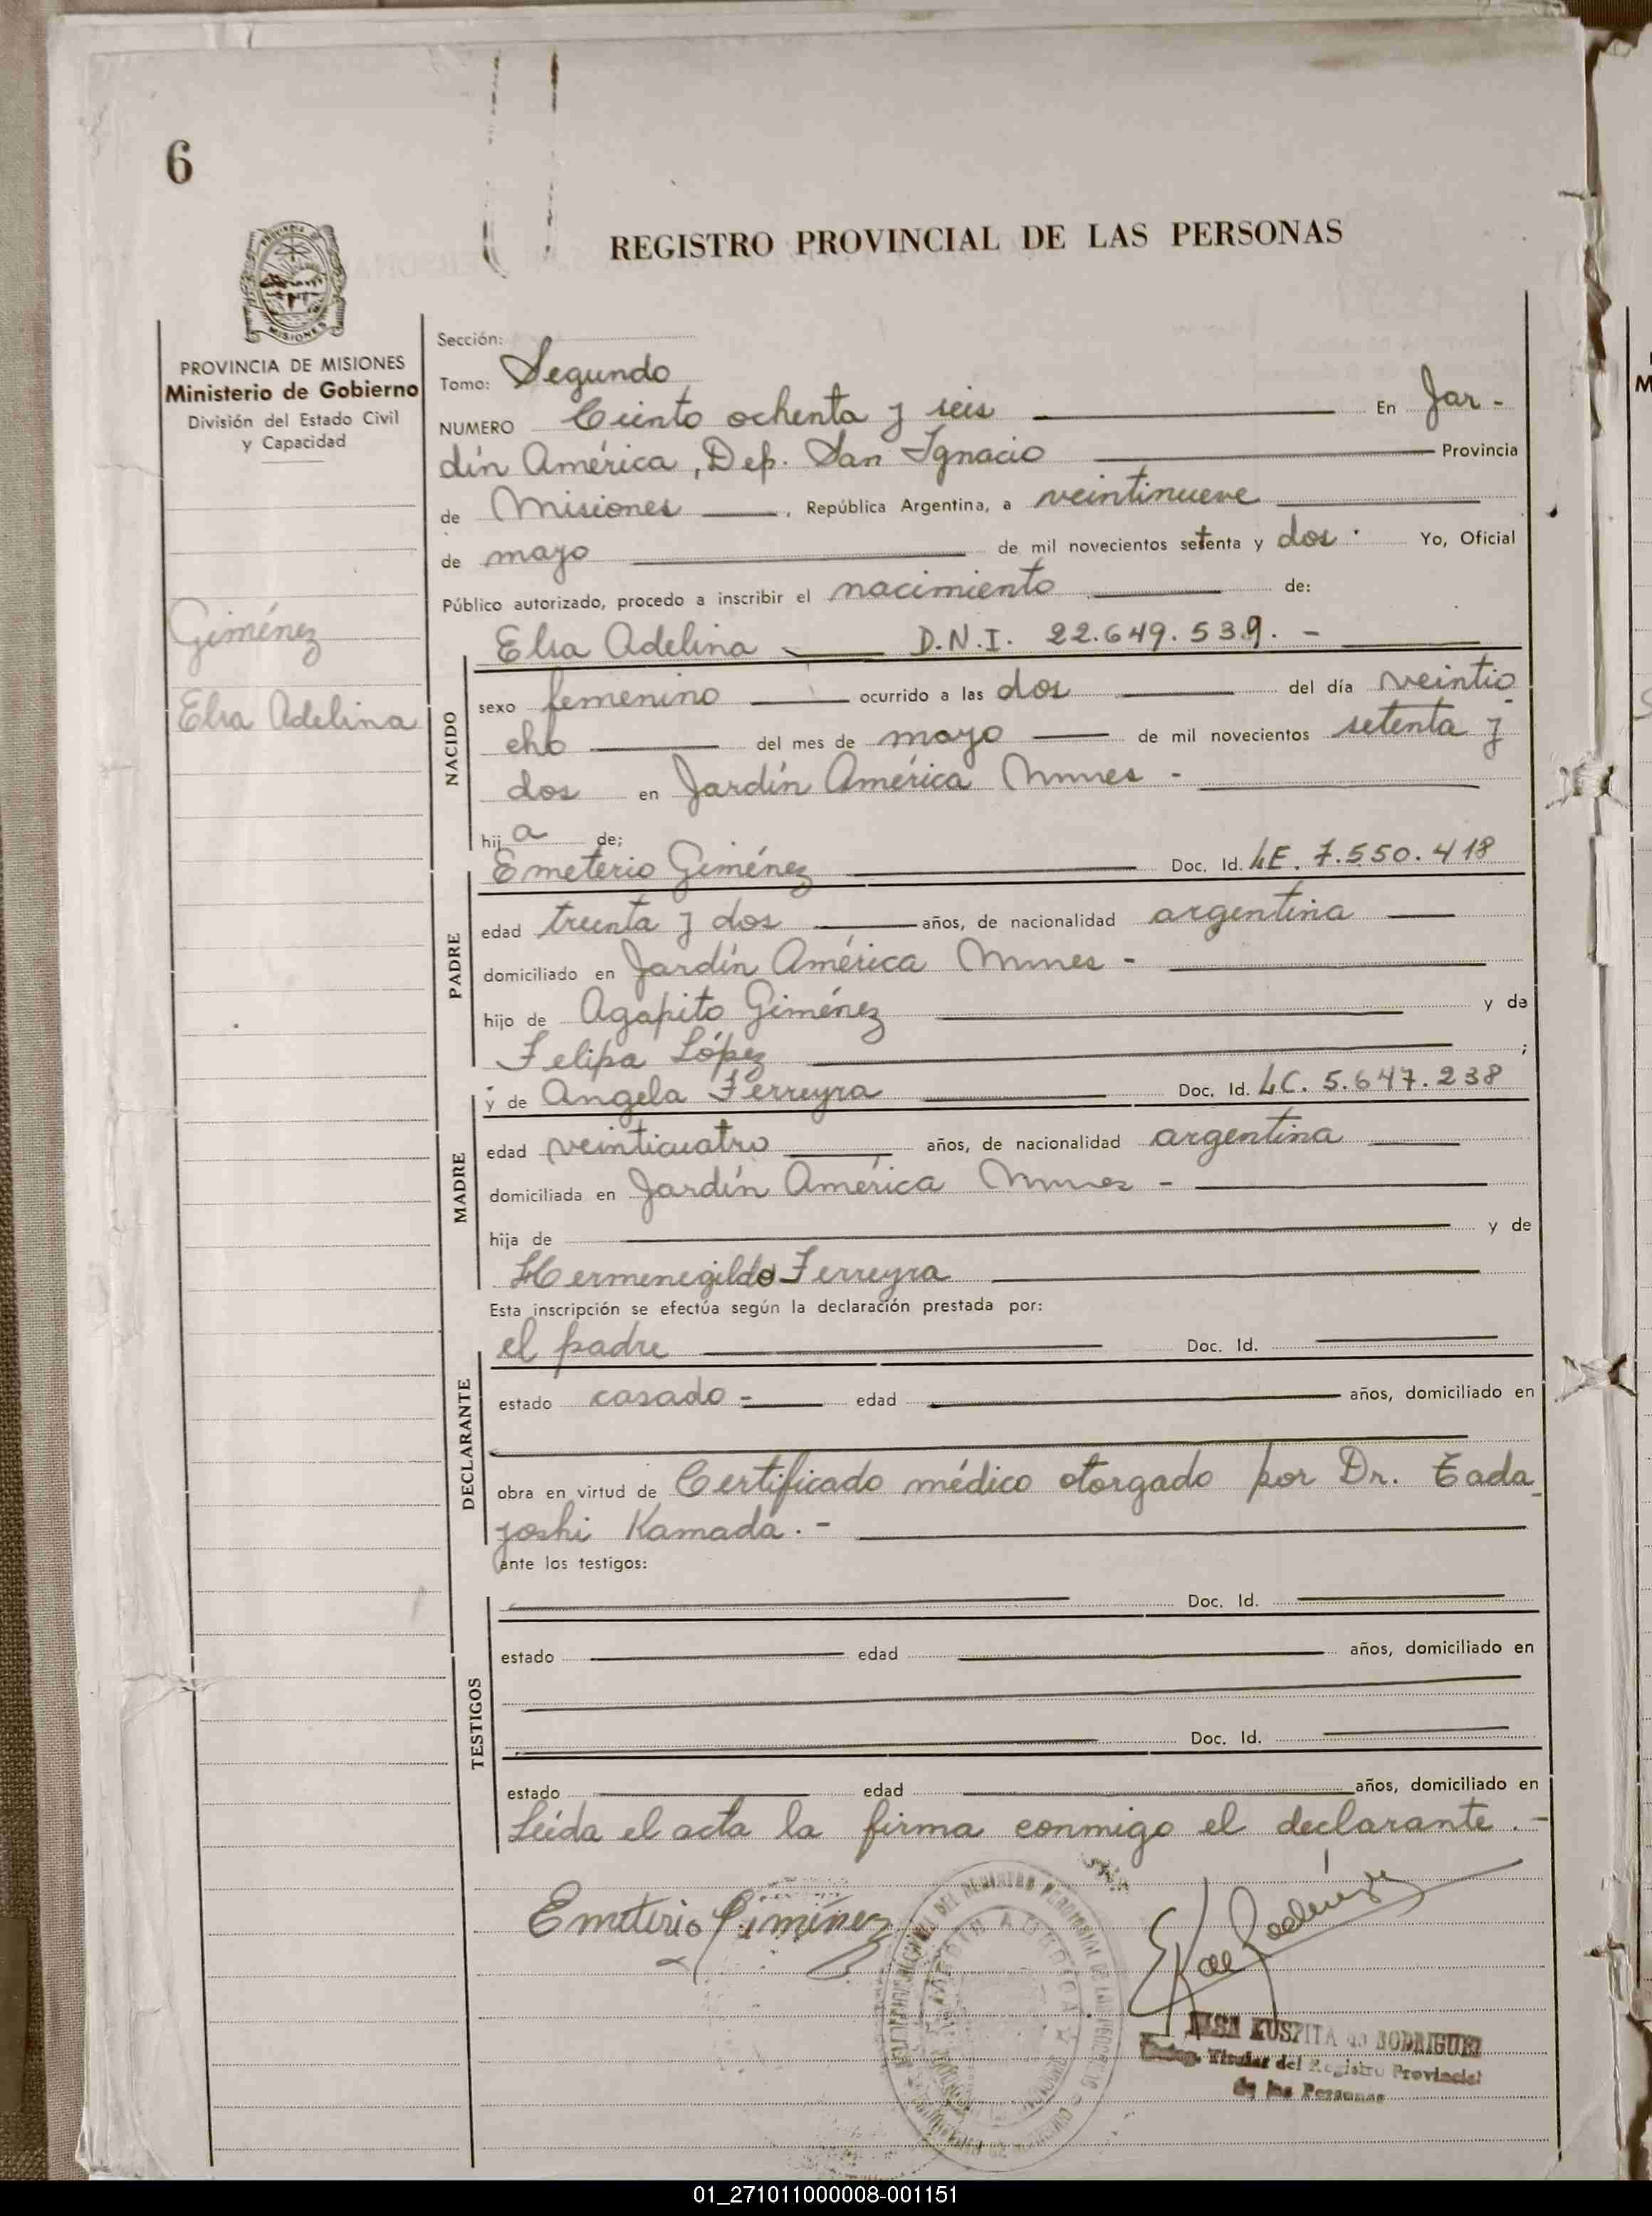 6
REGISTRO PROVINCIAL DE LAS PERSONAS
PROVINCIA DE MISIONES
Ministerio de Gobierno
División del Estado Civil
y Capacidad
Giménez
Elsa Adelina
Sección:
Tomo: Segundo
NUMERO Ciento ochenta y seis En Jar-
dín América, Dep. San Ignacio Provincia
de Misiones, República Argentina, a veintinueve
de mayo de mil novecientos setenta y dos. Yo, Oficial
Público autorizado, procedo a inscribir el nacimiento de:
Elsa Adelina D.N.I. 22.649.539.-
NACIDO
sexo femenino ocurrido a las dos del día veintio
cho del mes de mayo de mil novecientos setenta y
dos en Jardín América Mnnes -
hija de;
PADRE
Emeterio Giménez Doc. Id. LE. 7.550.418
edad treinta y dos años, de nacionalidad argentina
domiciliado en Jardín América Mnnes -
hijo de Agapito Giménez y de
Felipa López ;
MADRE
y de Angela Ferreyra Doc. Id. LC. 5.647.238
edad veinticuatro años, de nacionalidad argentina
domiciliada en Jardín América Mnnes -
hija de y de
Hermenegildo Ferreyra
Esta inscripción se efectúa según la declaración prestada por:
DECLARANTE
el padre Doc. Id.
estado casado - edad años, domiciliado en
obra en virtud de Certificado médico otorgado por Dr. Tada
yoshi Kamada.-
ante los testigos:
TESTIGOS
Doc. Id.
estado edad años, domiciliado en
Doc. Id.
estado edad años, domiciliado en
Leída el acta la firma conmigo el declarante.-
Emeterio Giménez
KUSPITA de RODRIGUEZ
Titular del Registro Provincial
de las Personas
01_271011000008-001151